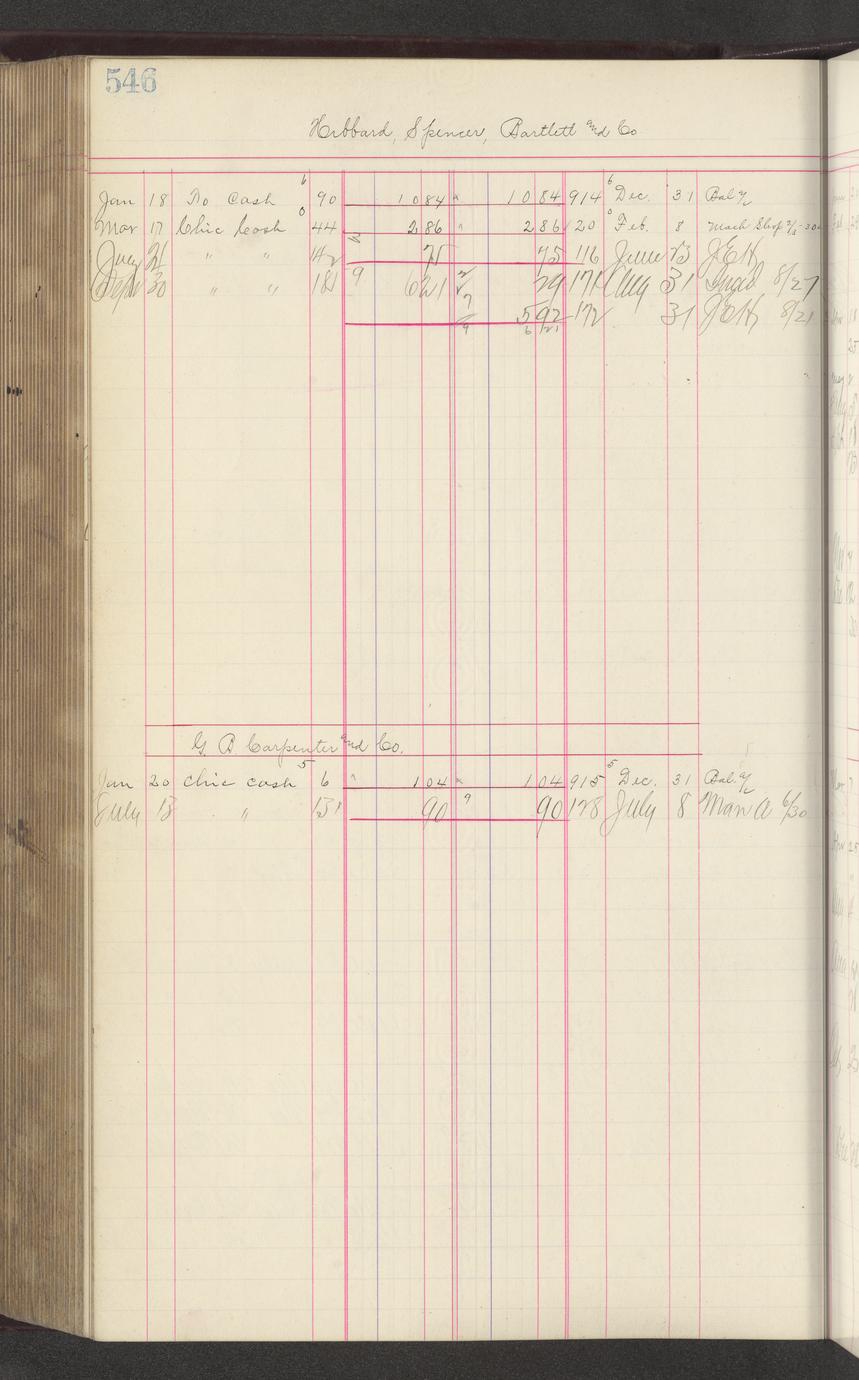 546
Hibbard, Spencer, Bartlett and Co
Jan 18 To Cash 90 10 84 10 84 914 Dec. 31 Bal a/c
Mar 17 Chic Cash 44 2 86 2 86 20 Feb. 8 Mach Shop
July 21 " " 142 75 75 116 June 23 J.E.H.
Sept 30 " " 181 6 21 29 171 Aug 31 8/27
5 92 172 31 J.E.H. 8/21
6 21
G. B. Carpenter and Co.
Jan 20 Chic cash 6 1 04 1 04 915 Dec. 31 Bal. a/c
July 13 " 131 90 90 128 July 8 Man A 6/30